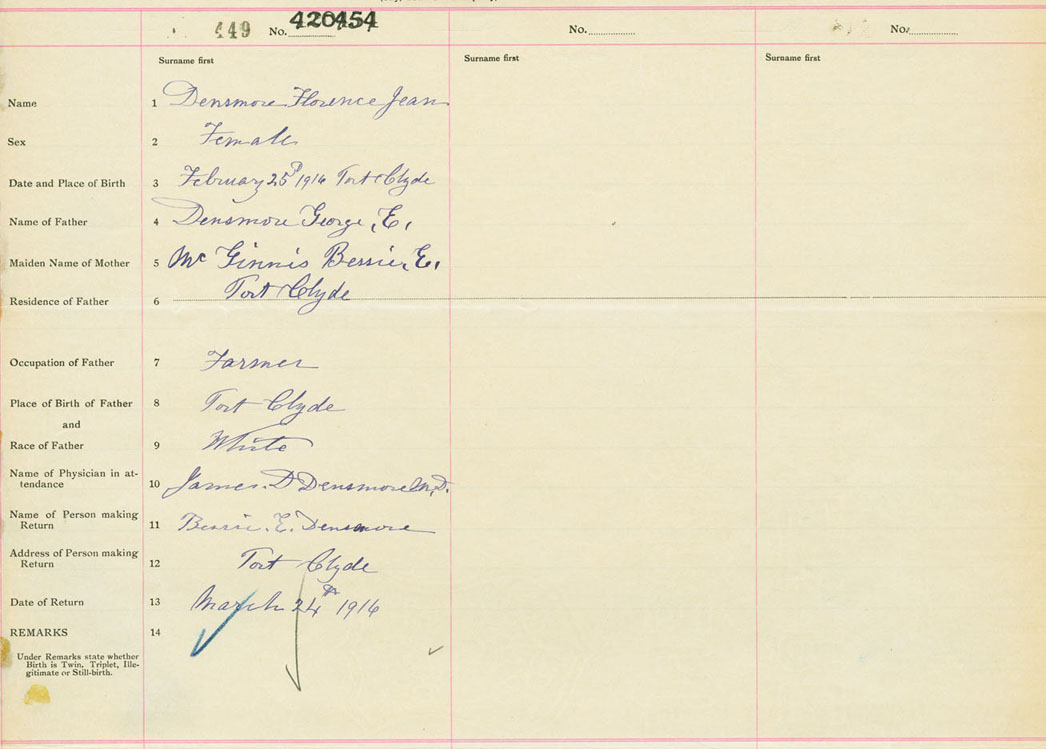 449 No. 420454 No. No.
Surname first Surname first Surname first
Name 1 Densmore Florence Jean
Sex 2 Female
Date and Place of Birth 3 February 25 1916 Port Clyde
Name of Father 4 Densmore George, E.
Maiden Name of Mother 5 Mc Ginnis Bessie, E.
Residence of Father 6 Port Clyde
Occupation of Father 7 Farmer
Place of Birth of Father 8 Port Clyde
and
Race of Father 9 White
Name of Physician in at-
tendance 10 James. D Densmore M.D.
Name of Person making
Return 11 Bessie. E. Densmore
Address of Person making
Return 12 Port Clyde
Date of Return 13 March 24th 1916
REMARKS 14
Under Remarks state whether
Birth is Twin, Triplet, Ille-
gitimate or Still-birth.